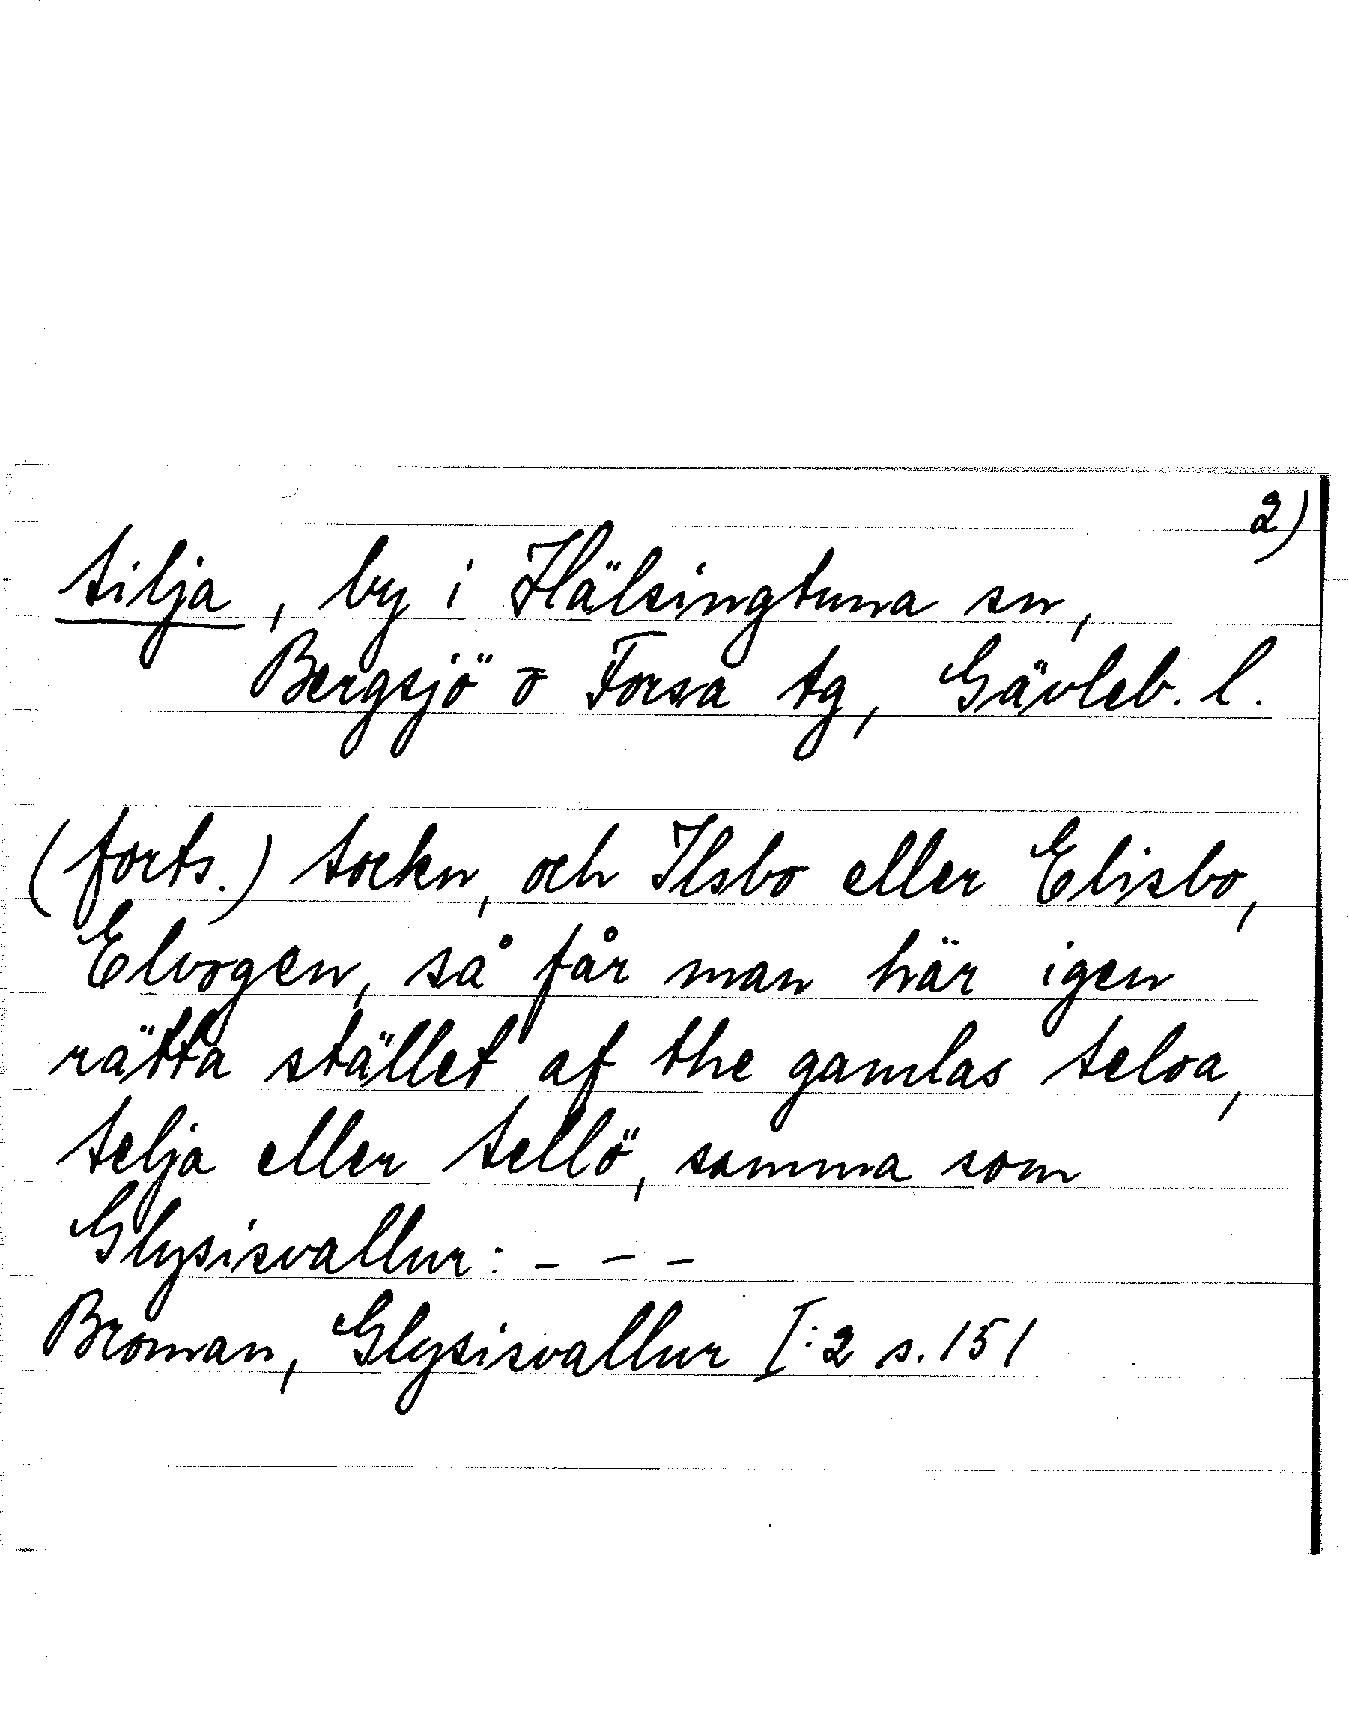 2)
tilja, by i Hälsingtuna sn,
Bergsjö o Forsa tg, Gävleb. l.
(forts.) tockn, och Ilsbo eller Elisbo,
Elvogen, så får man här igen
rätta stället af the gamlas teloa,
telja eller tellö, samma som
Glysisvallur: - - -
Broman, Glysisvallur I:2 s. 151